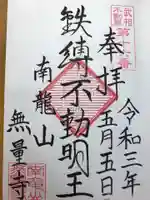 奉拝
令和三年
五月五日
武相
不動
第十六番
鉄縛不動明王
南龍山
無量寺